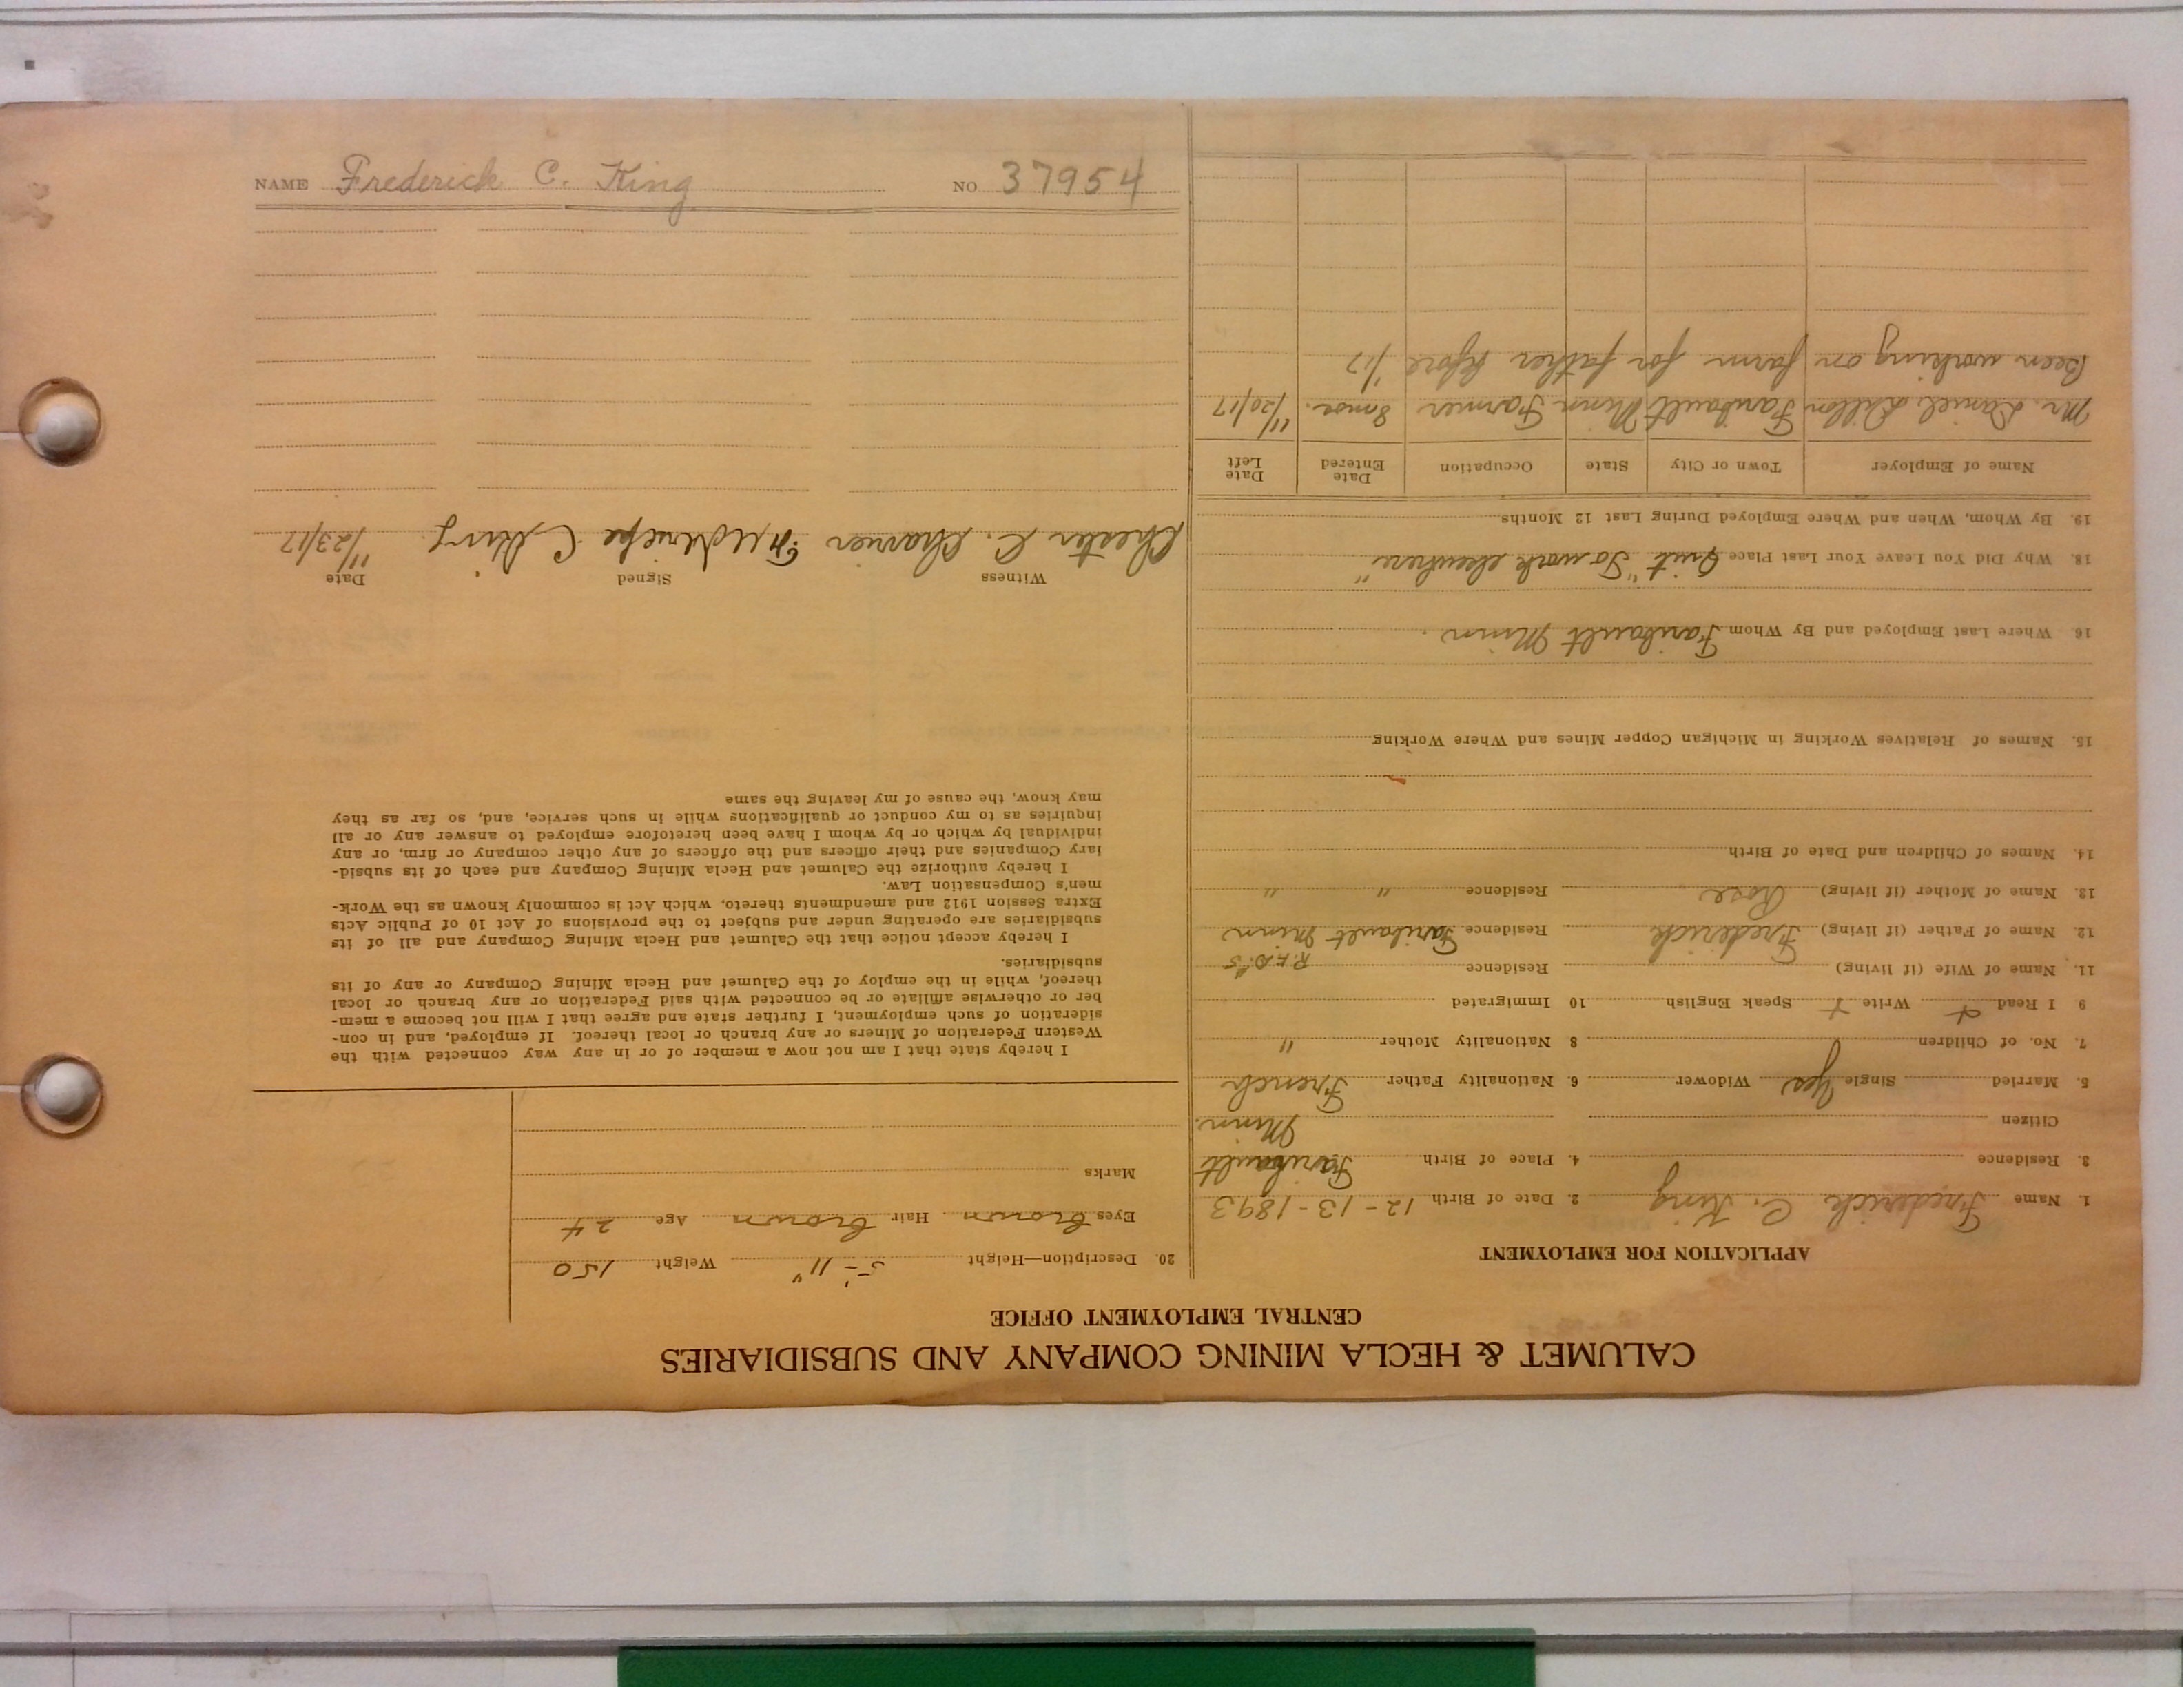 NAME Frederick C. King NO 37954
CALUMET & HECLA MINING COMPANY AND SUBSIDIARIES
CENTRAL EMPLOYMENT OFFICE
APPLICATION FOR EMPLOYMENT
1. Name Frederick C. King 2. Date of Birth 12-13-1893
3. Residence 4. Place of Birth Faribault
Minn.
Citizen
5. Married Single Yes Widower 6. Nationality Father French
7. No. of Children 8 Nationality Mother "
9 I Read + Write + Speak English 10 Immigrated
11. Name of Wife (if living) Residence R.F.D. #5
12. Name of Father (if living) Frederick Residence Faribault Minn
13. Name of Mother (if living) Rose Residence " "
14. Names of Children and Date of Birth
15. Names of Relatives Working in Michigan Copper Mines and Where Working
16. Where Last Employed and By Whom Faribault Minn.
18. Why Did You Leave Your Last Place Quit "To work elsewhere"
19. By Whom, When and Where Employed During Last 12 Months
Name of Employer Town or City State Occupation Date Entered Date Left
Mr. Daniel Dillon Faribault Minn Farmer 8 mos. 11/20/17
Been working on farm for father before 1/17
20. Description—Height 5'-11" Weight 150
Eyes Brown Hair Brown Age 24
Marks
I hereby state that I am not now a member of or in any way connected with the
Western Federation of Miners or any branch or local thereof. If employed, and in con-
sideration of such employment, I further state and agree that I will not become a mem-
ber or otherwise affiliate or be connected with said Federation or any branch or local
thereof, while in the employ of the Calumet and Hecla Mining Company or any of its
subsidiaries.
I hereby accept notice that the Calumet and Hecla Mining Company and all of its
subsidiaries are operating under and subject to the provisions of Act 10 of Public Acts
Extra Session 1912 and amendments thereto, which Act is commonly known as the Work-
men's Compensation Law.
I hereby authorize the Calumet and Hecla Mining Company and each of its subsid-
iary Companies and their officers and the officers of any other company or firm, or any
individual by which or by whom I have been heretofore employed to answer any or all
inquiries as to my conduct or qualifications while in such service, and, so far as they
may know, the cause of my leaving the same
Witness Signed Date
Chester C. Frederick C King 11/23/17